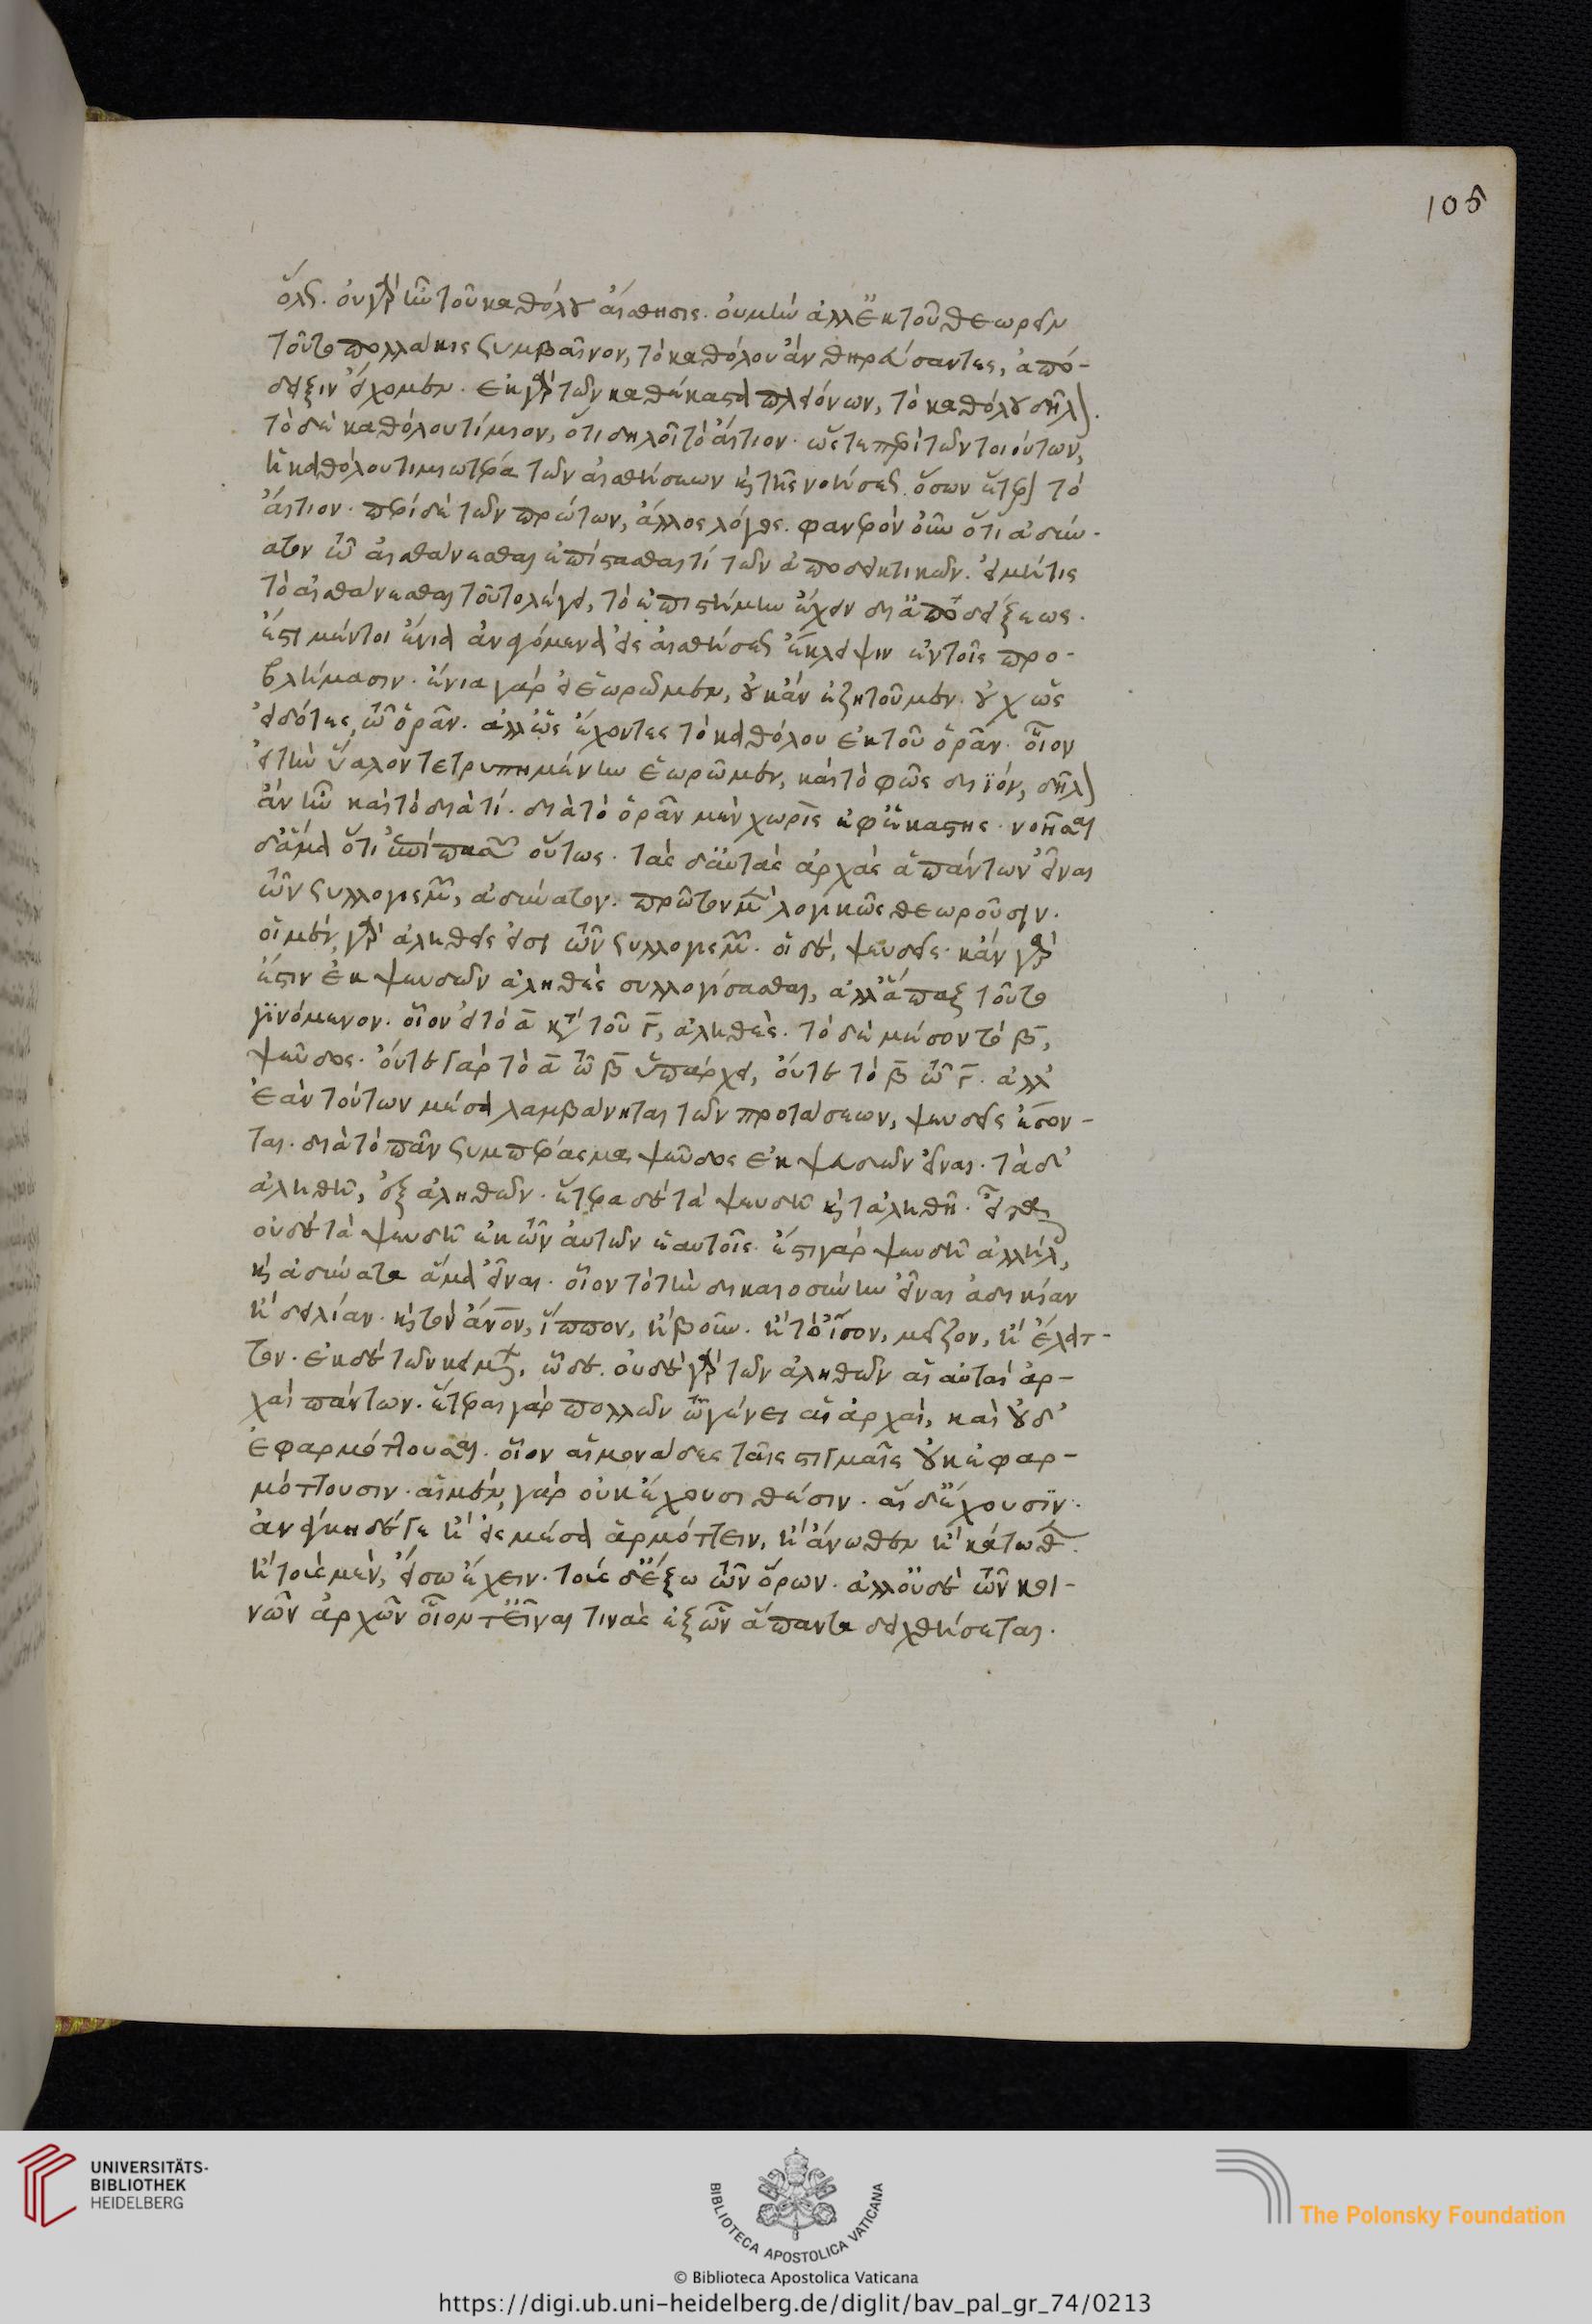 ὅλως. οὐ γὰρ ἦν τοῦ καθόλου αἴσθησις. οὐ μὴν ἀλλ' ἐκ τοῦ θεωρεῖν
τοῦτο πολλάκις συμβαῖνον, τὸ καθόλου ἂν θηρεύσαντες, ἀπό-
δειξιν εἴχομεν. ἐκ γὰρ τῶν καθέκαστα πλειόνων, τὸ καθόλου δῆλον.
τὸ δὲ καθόλου τίμιον, ὅτι δηλοῖ τὸ αἴτιον. ὥστε περὶ τῶν τοιούτων,
ἡ καθόλου τιμιωτέρα τῶν αἰσθήσεων καὶ τῆς νοήσεως. ὅσων ἕτερον τὸ
αἴτιον. περὶ δὲ τῶν πρώτων, ἄλλος λόγος. φανερὸν οὖν ὅτι ἀδύνα-
τον τῶ αἰσθάνεσθαι ἐπίστασθαί τι τῶν ἀποδεικτικῶν. εἰ μή τις
τὸ αἰσθάνεσθαι τοῦτο λέγει, τὸ ἐπιστήμην ἔχειν δι' ἀποδείξεως.
ἔστι μέντοι ἔνια ἀναγόμενα εἰς αἰσθήσεως ἔκλειψιν ἐν τοῖς προ-
βλήμασιν. ἔνια γὰρ εἰ ἑωρῶμεν, οὐκ ἂν ἐζητοῦμεν. οὐχ ὡς
εἰδότες τῶ ὁρᾶν. ἀλλ' ὡς ἔχοντες τὸ καθόλου ἐκ τοῦ ὁρᾶν. οἷον
εἰ τὴν ὕαλον τετρυπημένην ἑωρῶμεν, καὶ τὸ φῶς διϊόν, δῆλον
ἂν ἦν καὶ τὸ διατί. διὰ τὸ ὁρᾶν μὲν χωρὶς ἐφ' ἑκάστης. νοῆσαι
δ' ἅμα ὅτι ἐπὶ πασῶν οὕτως. τὰς δ' αὐτὰς ἀρχὰς ἁπάντων εἶναι
τῶν συλλογισμῶν, ἀδύνατον. πρῶτον μὲν λογικῶς θεωροῦσιν.
οἱ μὲν γὰρ ἀληθεῖς εἰσι τῶν συλλογισμῶν. οἱ δὲ, ψευδεῖς. κἂν γὰρ
ἔστιν ἐκ ψευδῶν ἀληθὲς συλλογίσασθαι, ἀλλ' ἅπαξ τοῦτο
γινόμενον. οἷον εἰ τὸ α κατὰ τοῦ γ, ἀληθές. τὸ δὲ μέσον τὸ β,
ψεῦδος. οὔτε γὰρ τὸ α τῶ β ὑπάρχει, οὔτε τὸ β τῶ γ. ἀλλ'
ἐὰν τούτων μέσα λαμβάνηται τῶν προτάσεων, ψευδεῖς ἔσον-
ται. διὰ τὸ πᾶν συμπέρασμα ψεῦδος ἐκ ψευδῶν εἶναι. τὰ δ'
ἀληθῆ, ἐξ ἀληθῶν. ἕτερα δὲ τὰ ψευδῆ καὶ τἀληθῆ. εἶτα
οὐδὲ τὰ ψευδῆ ἐκ τῶν αὐτῶν ἑαυτοῖς. ἔστι γὰρ ψευδῆ ἀλλήλοις,
καὶ ἀδύνατα ἅμα εἶναι. οἷον τὸ τὴν δικαιοσύνην εἶναι ἀδικίαν
ἢ δειλίαν. καὶ τὸν ἄνον, ἵππον, ἢ βοῦν. ἢ τὸ ἴσον, μεῖζον, ἢ ἔλατ-
τον. ἐκ δὲ τῶν κειμένων, ὧδε. οὐδὲ γὰρ τῶν ἀληθῶν αἱ αὐταὶ ἀρ-
χαὶ πάντων. ἕτεραι γὰρ πολλῶν τῶ γένει αἱ ἀρχαὶ, καὶ οὐδ'
ἐφαρμόττουσαι. οἷον αἱ μονάδες ταῖς στιγμαῖς οὐκ ἐφαρ-
μόττουσιν. αἱ μὲν γὰρ οὐκ ἔχουσι θέσιν. αἱ δ' ἔχουσιν.
ἀνάγκη δέ γε ἢ εἰς μέσα ἁρμόττειν, ἢ ἄνωθεν ἢ κάτωθεν.
ἢ τοὺς μὲν, εἴσω ἔχειν. τοὺς δ' ἔξω τῶν ὅρων. ἀλλ' οὐδὲ τῶν κοι-
νῶν ἀρχῶν οἷόν τ' εἶναι τινὰς ἐξ ὧν ἅπαντα δειχθήσεται.
105
UNIVERSITÄTS-
BIBLIOTHEK
HEIDELBERG
BIBLIOTECA APOSTOLICA VATICANA
The Polonsky Foundation
© Biblioteca Apostolica Vaticana
https://digi.ub.uni-heidelberg.de/diglit/bav_pal_gr_74/0213